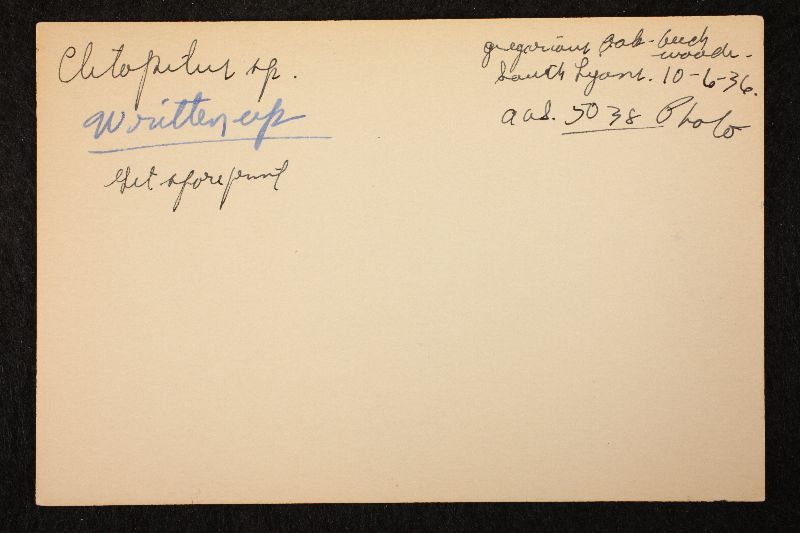 Clitopilus sp.
Written up
Get spore print
gregarious oak-beech
woods-
South Lyons. 10-6-36.
aas. 5038 Photo